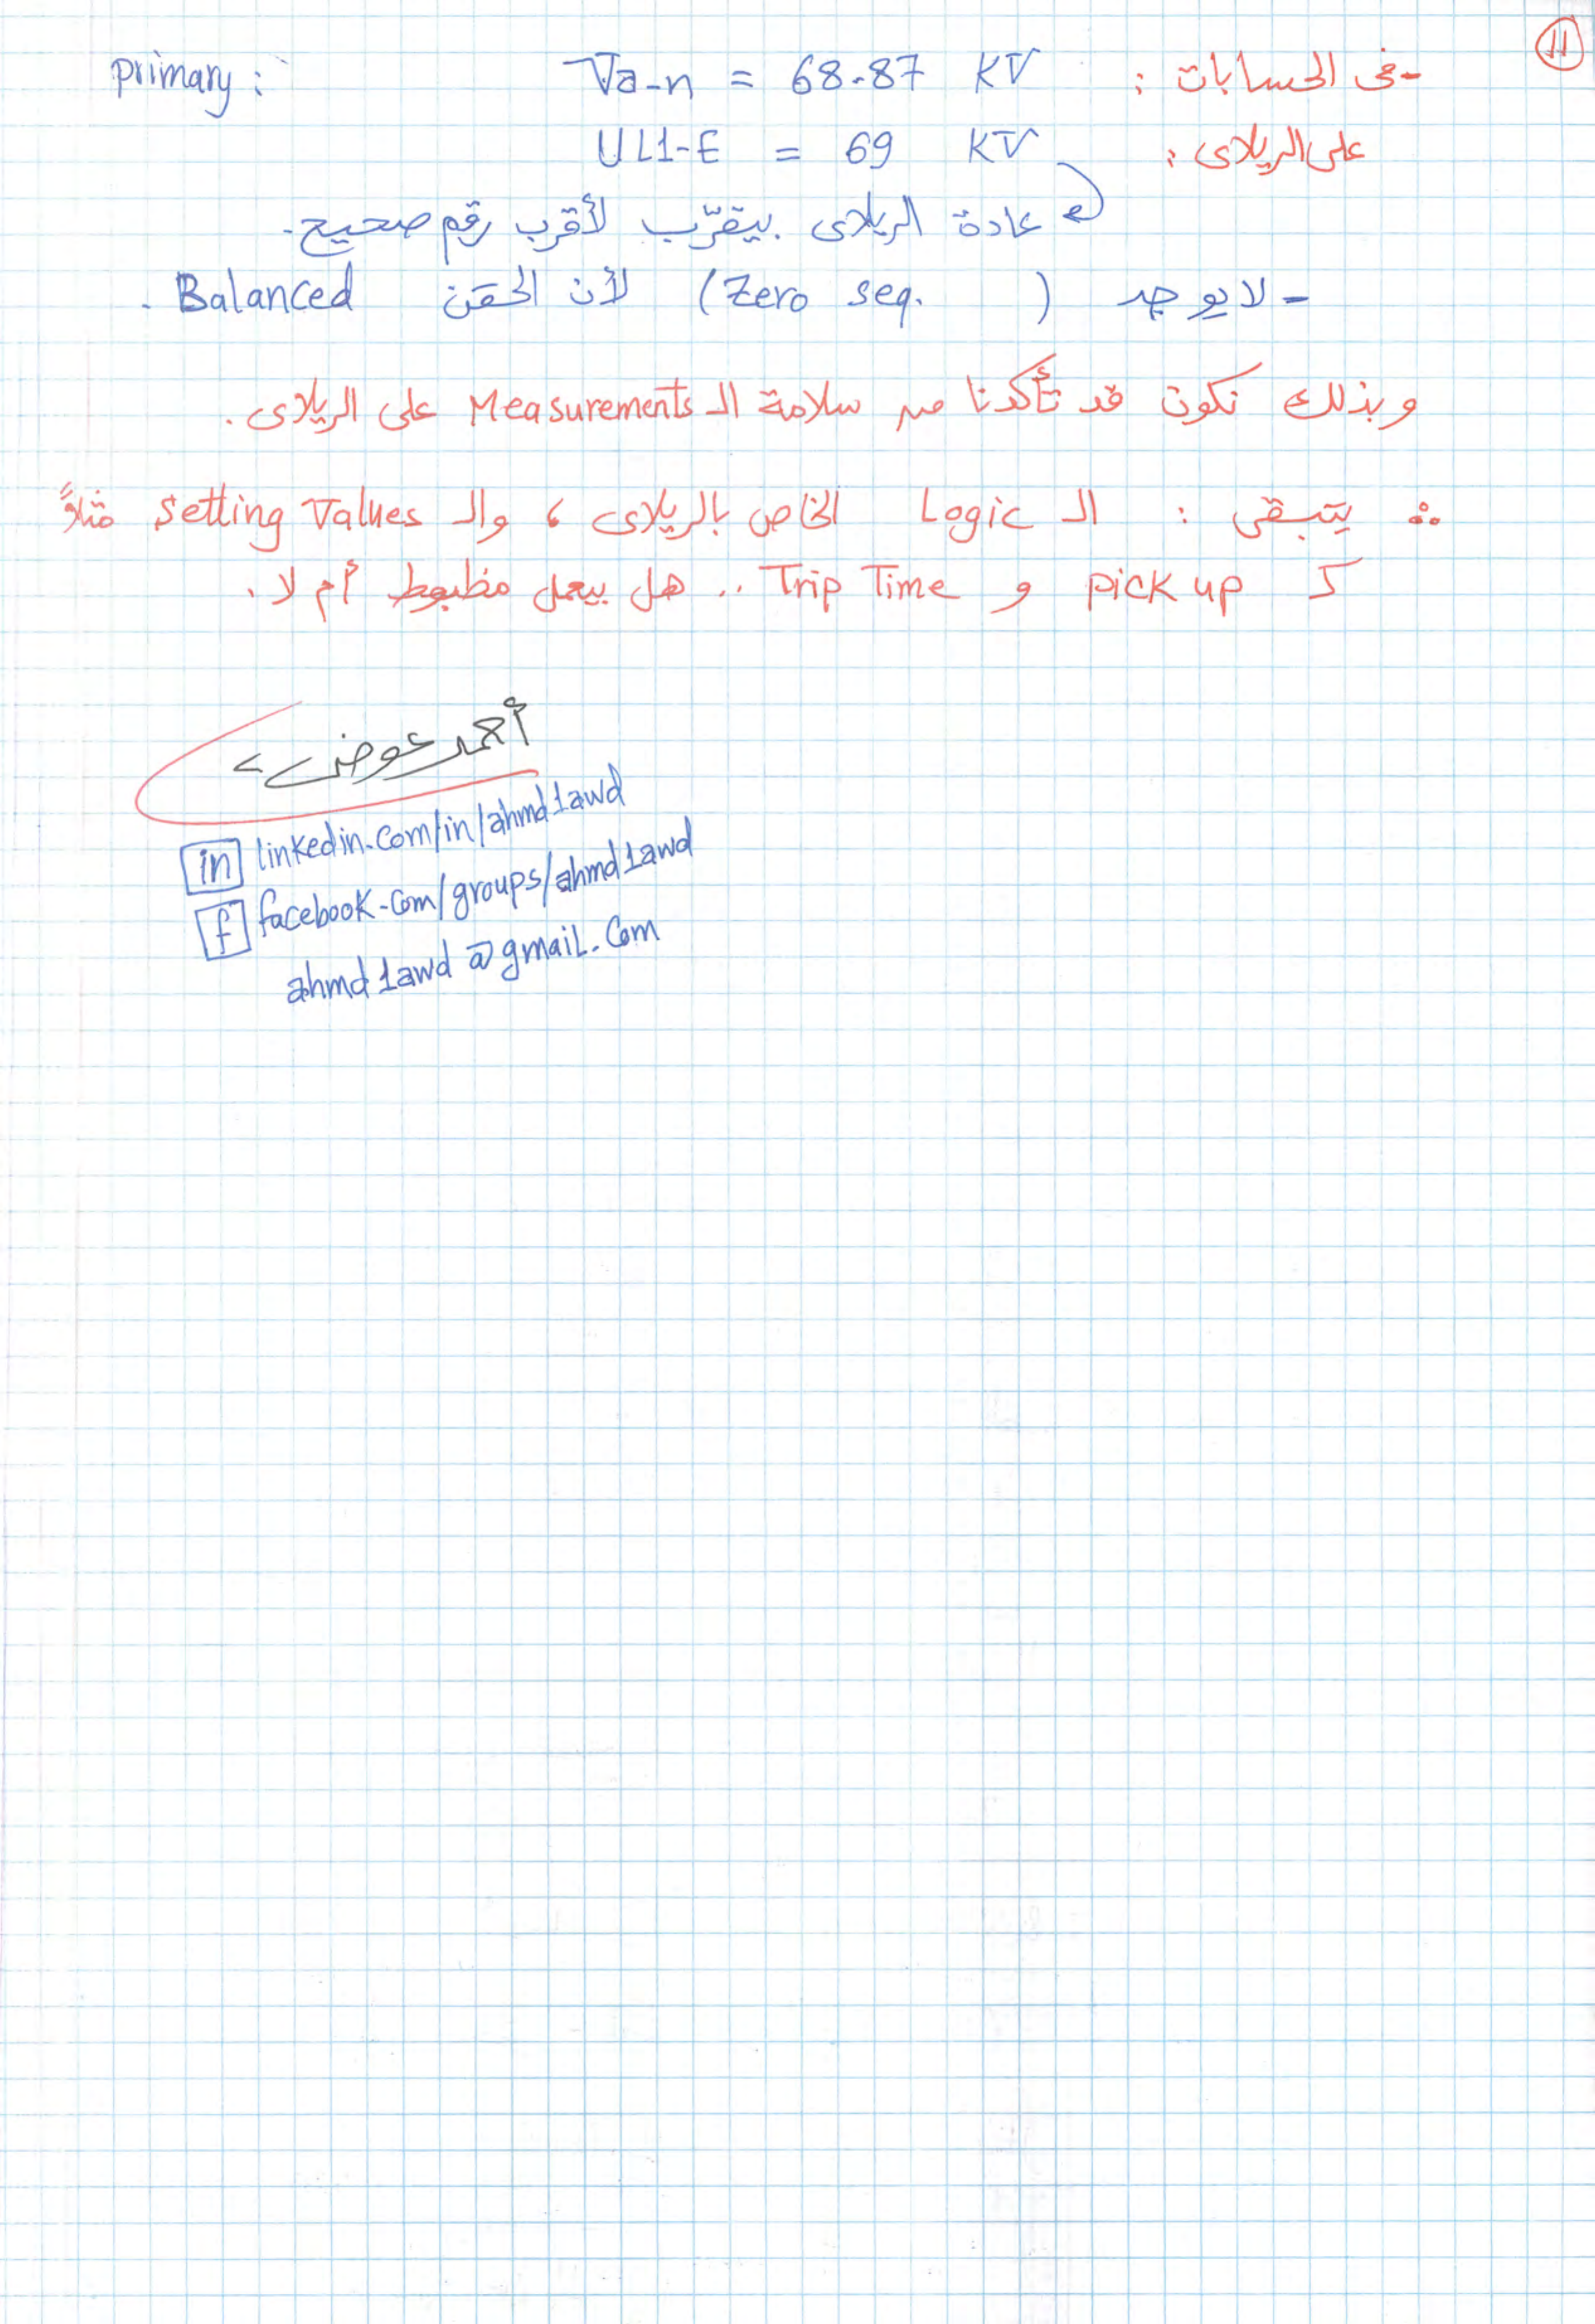 11
- فى الحسابات : Va-n = 68.87 KV primary :
على الريلاى : UL1-E = 69 KV
عادة الريلاى بيقرّب لأقرب رقم صحيح.
- لا يوجد (Zero seq. ) لأن الحقن Balanced .
وبذلك نكون قد تأكدنا من سلامة الـ Measurements على الريلاى .
∴ يتبقى : الـ Logic الخاص بالريلاى ، والـ setting Values مثلاً
كـ pick up و Trip Time .. هل بيعمل مظبوط أم لا .
أحمد عوض
in linkedin.com/in/ahmd1awd
f facebook.com/groups/ahmd1awd
ahmd1awd@gmail.com